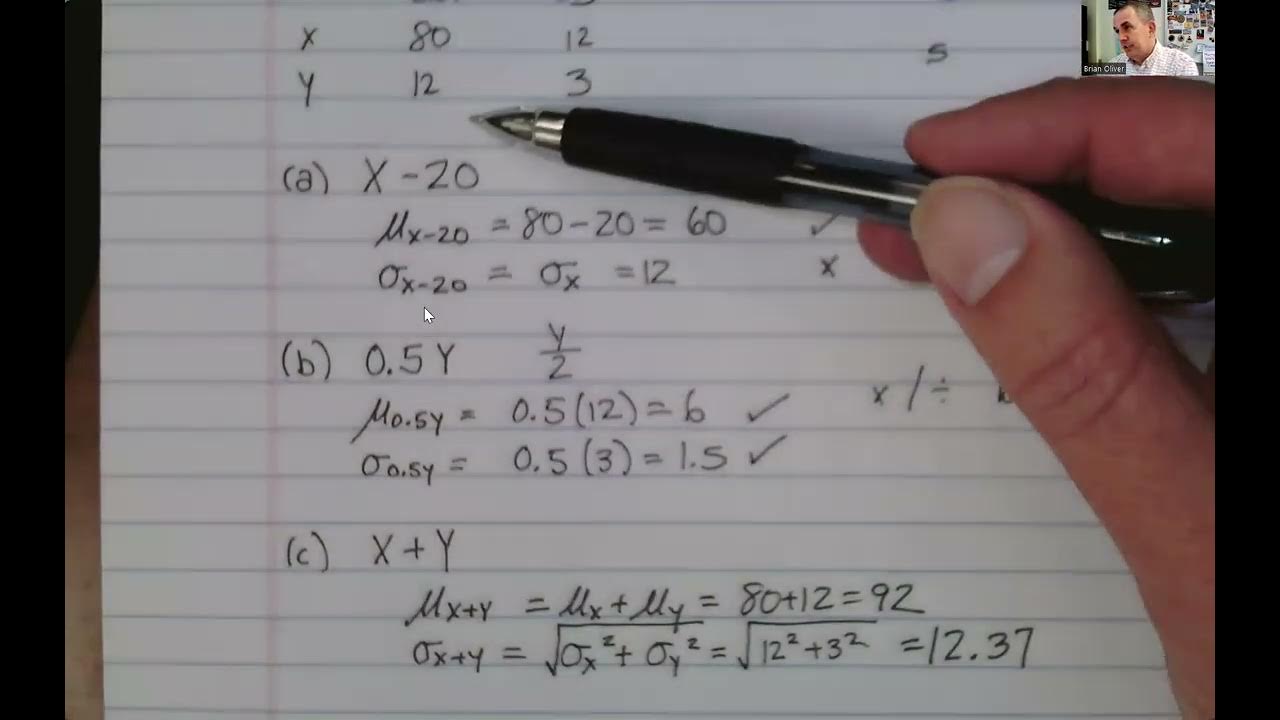 X 80 12
Y 12 3
s
Brian Oliver
(a) X - 20
μx-20 = 80 - 20 = 60 ✓
σx-20 = σx = 12 x
(b) 0.5Y Y/2
μ0.5Y = 0.5(12) = 6 ✓ x / ÷
σ0.5Y = 0.5(3) = 1.5 ✓
(c) X + Y
μx+y = μx + μy = 80+12 = 92
σx+y = √σx² + σy² = √12² + 3² = 12.37